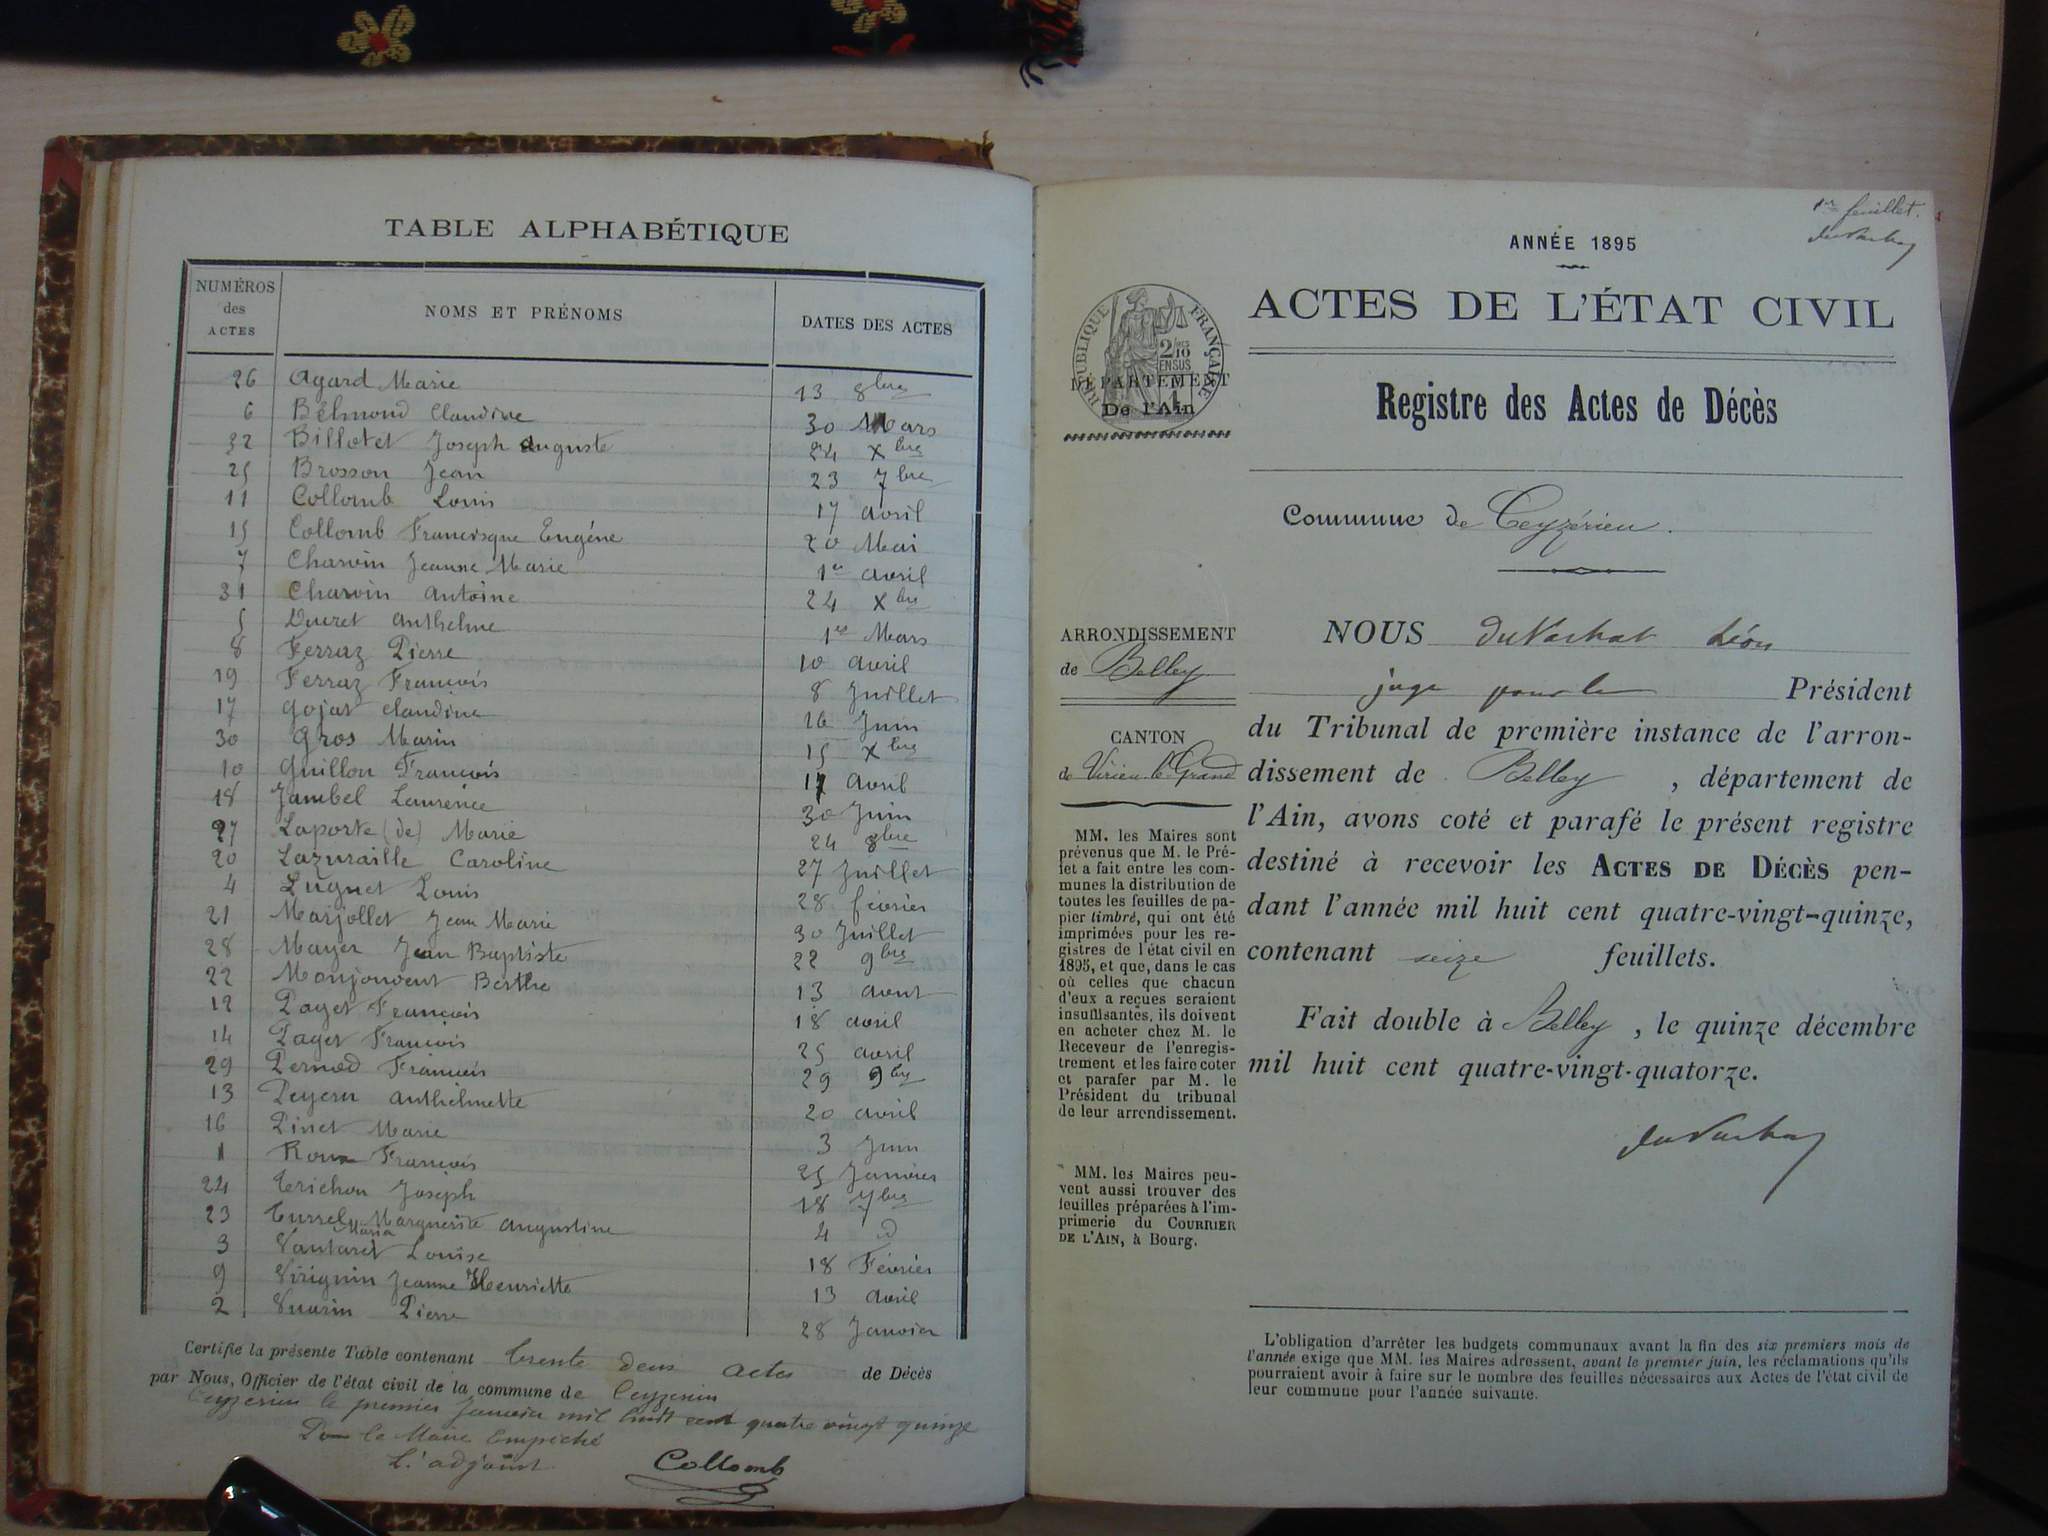 TABLE ALPHABÉTIQUE
NUMÉROS des ACTES NOMS ET PRÉNOMS DATES DES ACTES
26 Agard Marie 13 8bre
6 Belmond Claudine 30 Mars
32 Billotet Joseph Auguste 24 Xbre
25 Brosson Jean 23 7bre
11 Collomb Louis 17 avril
15 Collomb Francisque Eugène 20 Mai
7 Charvin Jeanne Marie 1er avril
31 Charvin Antoine 24 Xbre
5 Ducret Anthelme 1er Mars
8 Ferraz Pierre 10 avril
19 Ferraz François 8 Juillet
17 Gojat Claudine 16 Juin
30 Gros Marin 15 Xbre
10 Guillon François 17 avril
18 Jambel Laurence 30 Juin
27 Laporte (de) Marie 24 8bre
20 Lazuraille Caroline 27 Juillet
4 Luguet Louis 28 février
21 Marjollet Jean Marie 30 Juillet
28 Mayer Jean Baptiste 22 9bre
22 Monjouvent Berthe 13 aout
12 Paget François 18 avril
14 Paget François 25 avril
29 Pernod François 29 9bre
13 Peyssu Anthelmette 20 avril
16 Pinet Marie 3 Juin
1 Roux François 25 Janvier
24 Trichon Joseph 18 7bre
23 Turrel Marguerite Augustine 4 d
Maria
3 Vautaret Louise 18 Février
9 Virignin Jeanne Henriette 13 avril
2 Vuarin Pierre 28 Janvier
Certifie la présente Table contenant trente deux actes de Décès
par Nous, Officier de l'état civil de la commune de Ceyzerieu
Ceyzerieu le premier Janvier mil huit cent quatre vingt quinze
Pour le Maire Empeché
L'adjoint Collomb
1er feuillet.
duVachat
ANNÉE 1895
ACTES DE L'ÉTAT CIVIL
RÉPUBLIQUE FRANÇAISE
2/10 EN SUS
DÉPARTEMENT
De l'Ain
Registre des Actes de Décès
Commune de Ceyzérieu.
ARRONDISSEMENT
de Belley
CANTON
de Virieu-le-Grand
MM. les Maires sont
prévenus que M. le Pré-
fet a fait entre les com-
munes la distribution de
toutes les feuilles de pa-
pier timbré, qui ont été
imprimées pour les re-
gistres de l'état civil en
1895, et que, dans le cas
où celles que chacun
d'eux a reçues seraient
insuffisantes, ils doivent
en acheter chez M. le
Receveur de l'enregis-
trement et les faire coter
et parafer par M. le
Président du tribunal
de leur arrondissement.
MM. les Maires peu-
vent aussi trouver des
feuilles préparées à l'im-
primerie du COURRIER
DE L'AIN, à Bourg.
NOUS duVachat Léon
juge pour le Président
du Tribunal de première instance de l'arron-
dissement de Belley, département de
l'Ain, avons coté et parafé le présent registre
destiné à recevoir les ACTES DE DÉCÈS pen-
dant l'année mil huit cent quatre-vingt-quinze,
contenant seize feuillets.
Fait double à Belley, le quinze décembre
mil huit cent quatre-vingt-quatorze.
duVachat
L'obligation d'arrêter les budgets communaux avant la fin des six premiers mois de
l'année exige que MM. les Maires adressent, avant le premier juin, les réclamations qu'ils
pourraient avoir à faire sur le nombre des feuilles nécessaires aux Actes de l'état civil de
leur commune pour l'année suivante.